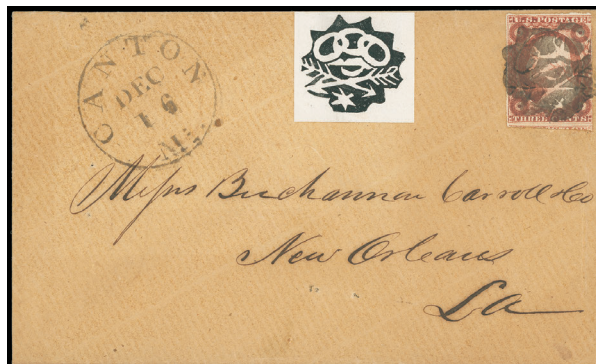 CANTON
DEC
16
Mi.
U.S. POSTAGE
THREE CENTS
Messrs Buchannon Carroll & Co
New Orleans
La